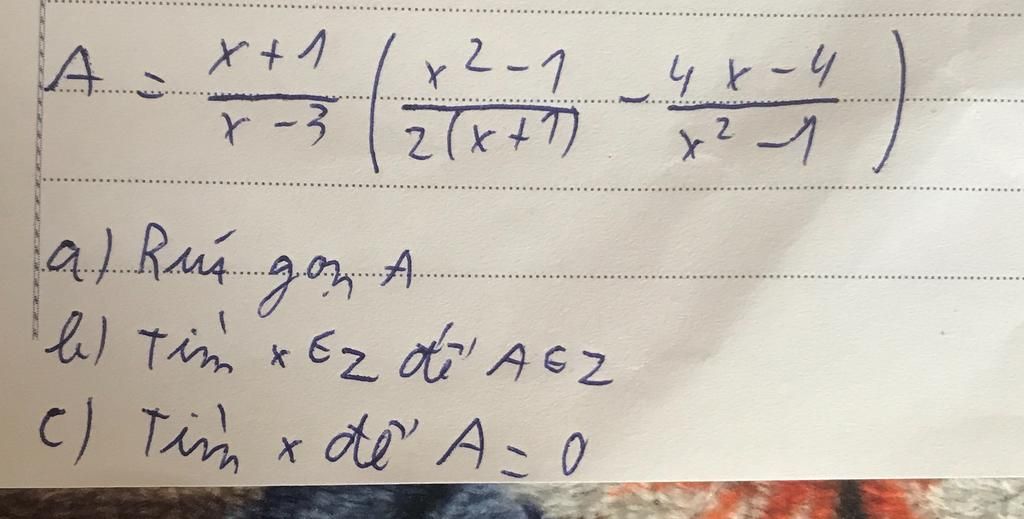 A = \frac{x+1}{x-3} \left( \frac{x^2-1}{2(x+1)} - \frac{4x-4}{x^2-1} \right)
a) Rút gọn A
b) Tìm x ∈ Z để A ∈ Z
c) Tìm x để A = 0